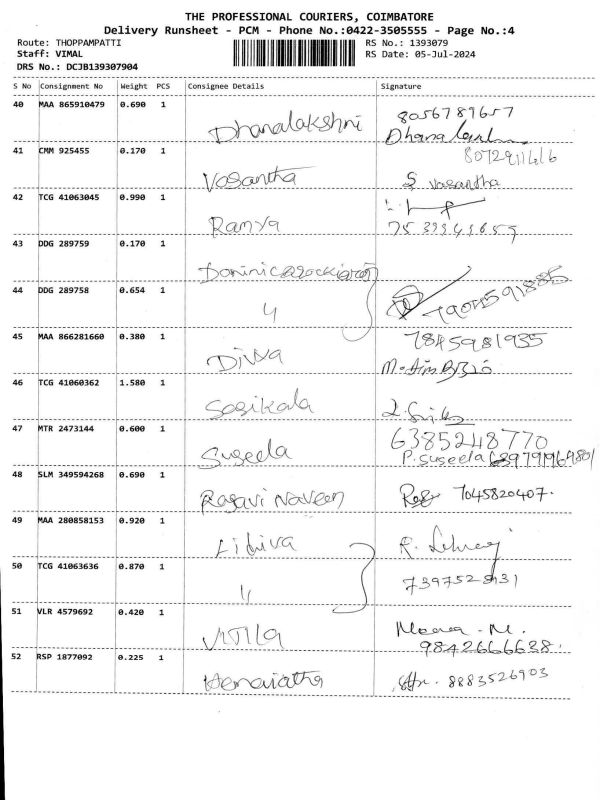 THE PROFESSIONAL COURIERS, COIMBATORE
Delivery Runsheet - PCM - Phone No.:0422-3505555 - Page No.:4
Route: THOPPAMPATTI RS No.: 1393079
Staff: VIMAL RS Date: 05-Jul-2024
DRS No.: DCJB139307904
S No Consignment No Weight PCS Consignee Details Signature
40 MAA 865910479 0.690 1
8056789657
Dhanalakshni Dhana
41 CMM 925455 0.170 1
Vasantha S vasantha
42 TCG 41063045 0.990 1
Ramya
43 DDG 289759 0.170 1
44 DDG 289758 0.654 1
7904591885
45 MAA 866281660 0.380 1 7845981935
Divya
46 TCG 41060362 1.580 1
Sasikala
47 MTR 2473144 0.600 1 6385248770
Suseela P. suseela
48 SLM 349594268 0.690 1
Ragavi Naveen 7045820407.
49 MAA 280858153 0.920 1
50 TCG 41063636 0.870 1
51 VLR 4579692 0.420 1
9842666638
52 RSP 1877092 0.225 1
8883526903